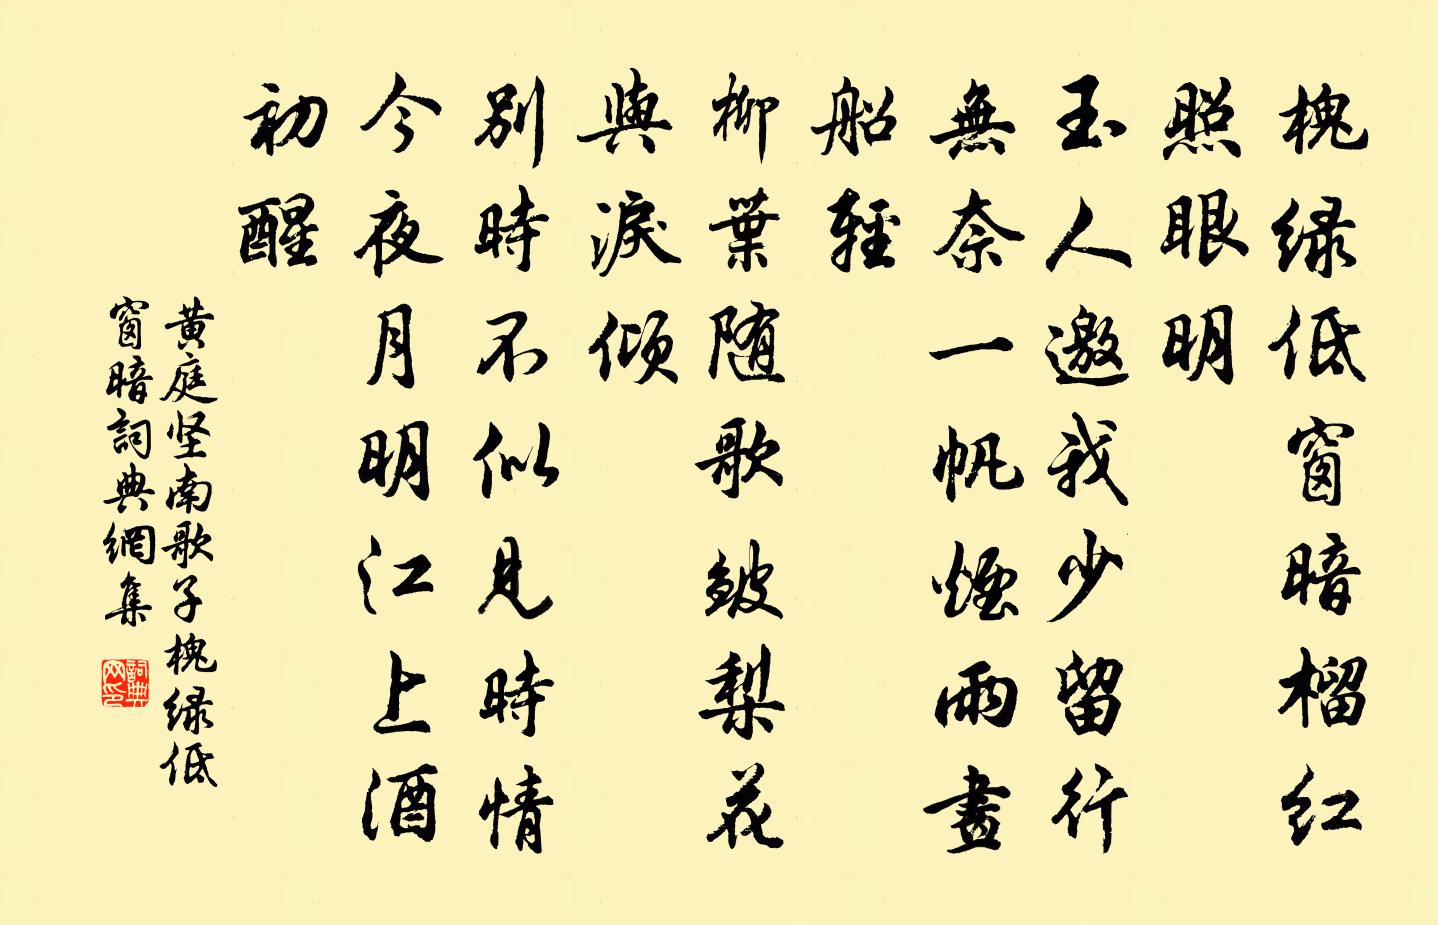 槐绿低窗暗榴红
照眼明
玉人邀我少留行
無奈一帆煙雨畫
船輕
柳葉随歌皺梨花
與淚倾
别時不似见時情
今夜月明江上酒
初醒
黄庭坚南歌子槐绿低
窗暗詞典網集
詞典
网印